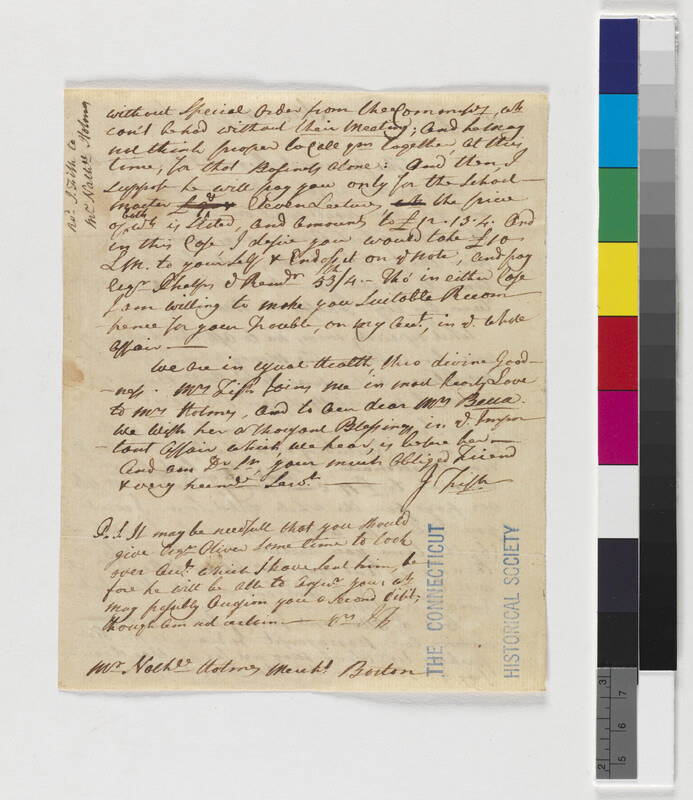 without Special Order from the Commissrs, wh
can't be had without their Meeting; And he may
not think proper to Call ym together, at this
time, for that Business alone: And then, I
suppose he will pay you only for the School
master & Seven Lectures the price
of both wh is Stated, and amounts to £12.13.4. And
in this Case I desire you would take £10
LM. to yourself & Endorse it on ye Note, and pay
Esqr Phelps ye Remdr 53/4. – Tho' in either Case
I am willing to make you Suitable Recom
pence for your Trouble, on my Acct, in ye whole
Affair —
We are in usual Health, thro divine Good-
ness. Mrs Fish joins me in most hearty Love
to Mrs Holmes, and to our dear Mrs Becca.
We wish her a thousand Blessings, in ye Impor
tant Affair which we hear, is before her —
And am Dr Sr, your much Obliged Friend
& very humbe Servt. —
J Fish
P.S. It may be needfull that you should
give Esqr Oliver some time to look
over Acct which I have sent him, be
fore he will be able to answr you; wh
may possibly Occasion you a second Visit;
though am not certain — yrs JF
Mr Nathll Holmes Mercht Boston
Revd J. Fish to
Mr Nathll Holmes
THE CONNECTICUT
HISTORICAL SOCIETY
2 3
5 6 7